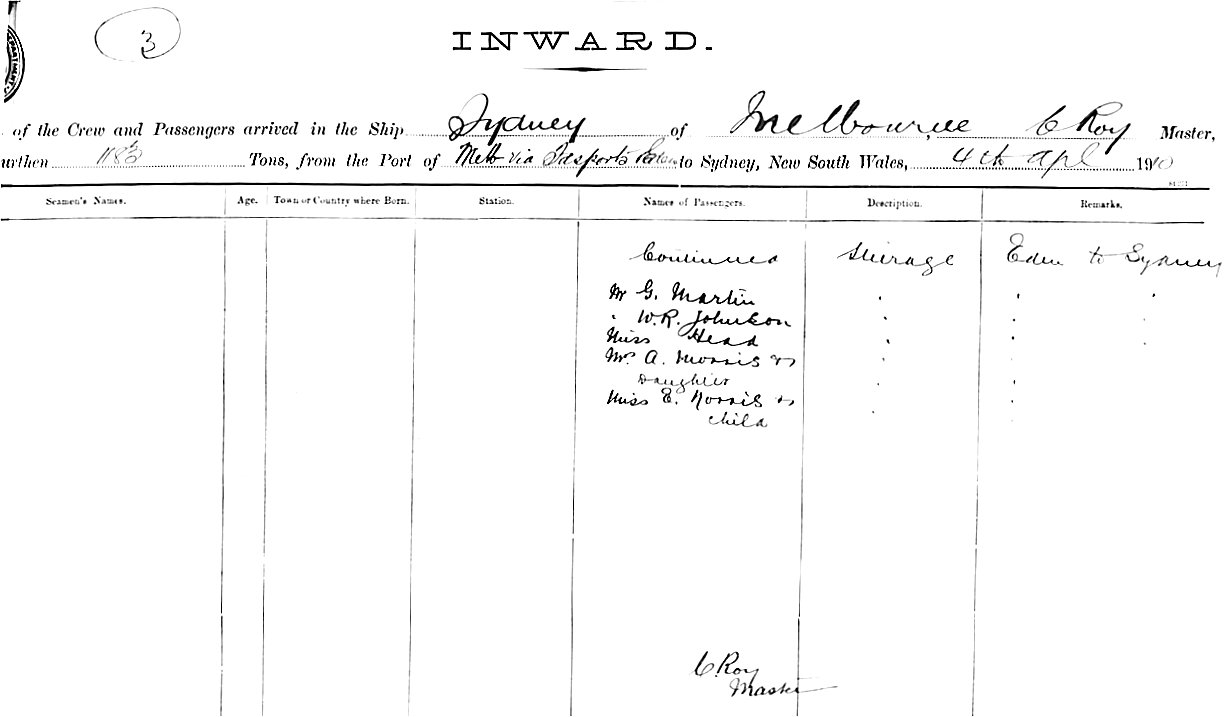 3
INWARD.
of the Crew and Passengers arrived in the Ship Sydney of Melbourne C Roy Master,
urthen Tons, from the Port of Melb via to Sydney, New South Wales, 4th Apl 1910
Seamen's Names. Age. Town or Country where Born. Station. Names of Passengers. Description. Remarks.
Continued Steerage Eden to Sydney
Mr G. Martin
" W.R. Johnson
Miss Head
Mrs A. Morris &
Daughter
Miss E. Norris &
child
C. Roy
Master